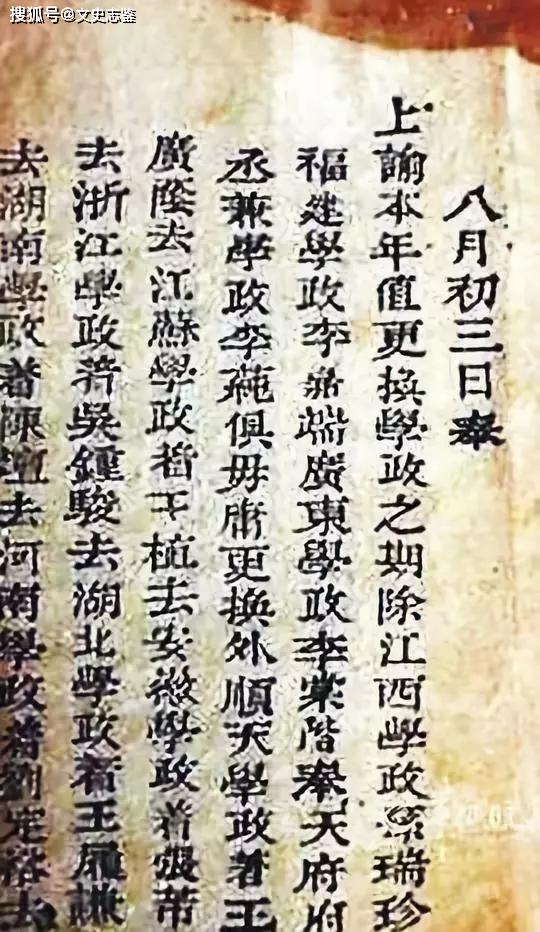 搜狐号@文史志鉴
八月初三日奉
上諭本年值更換學政之期除江西學政孫瑞珍
福建學政李嘉端廣東學政李棠階奉天府府
丞兼學政李蒓俱毋庸更換外順天學政著王
廣蔭去江蘇學政著王植去安徽學政著張芾
去浙江學政著吳鍾駿去湖北學政著王履謙
去湖南學政著陳壇去河南學政著劉定裕去